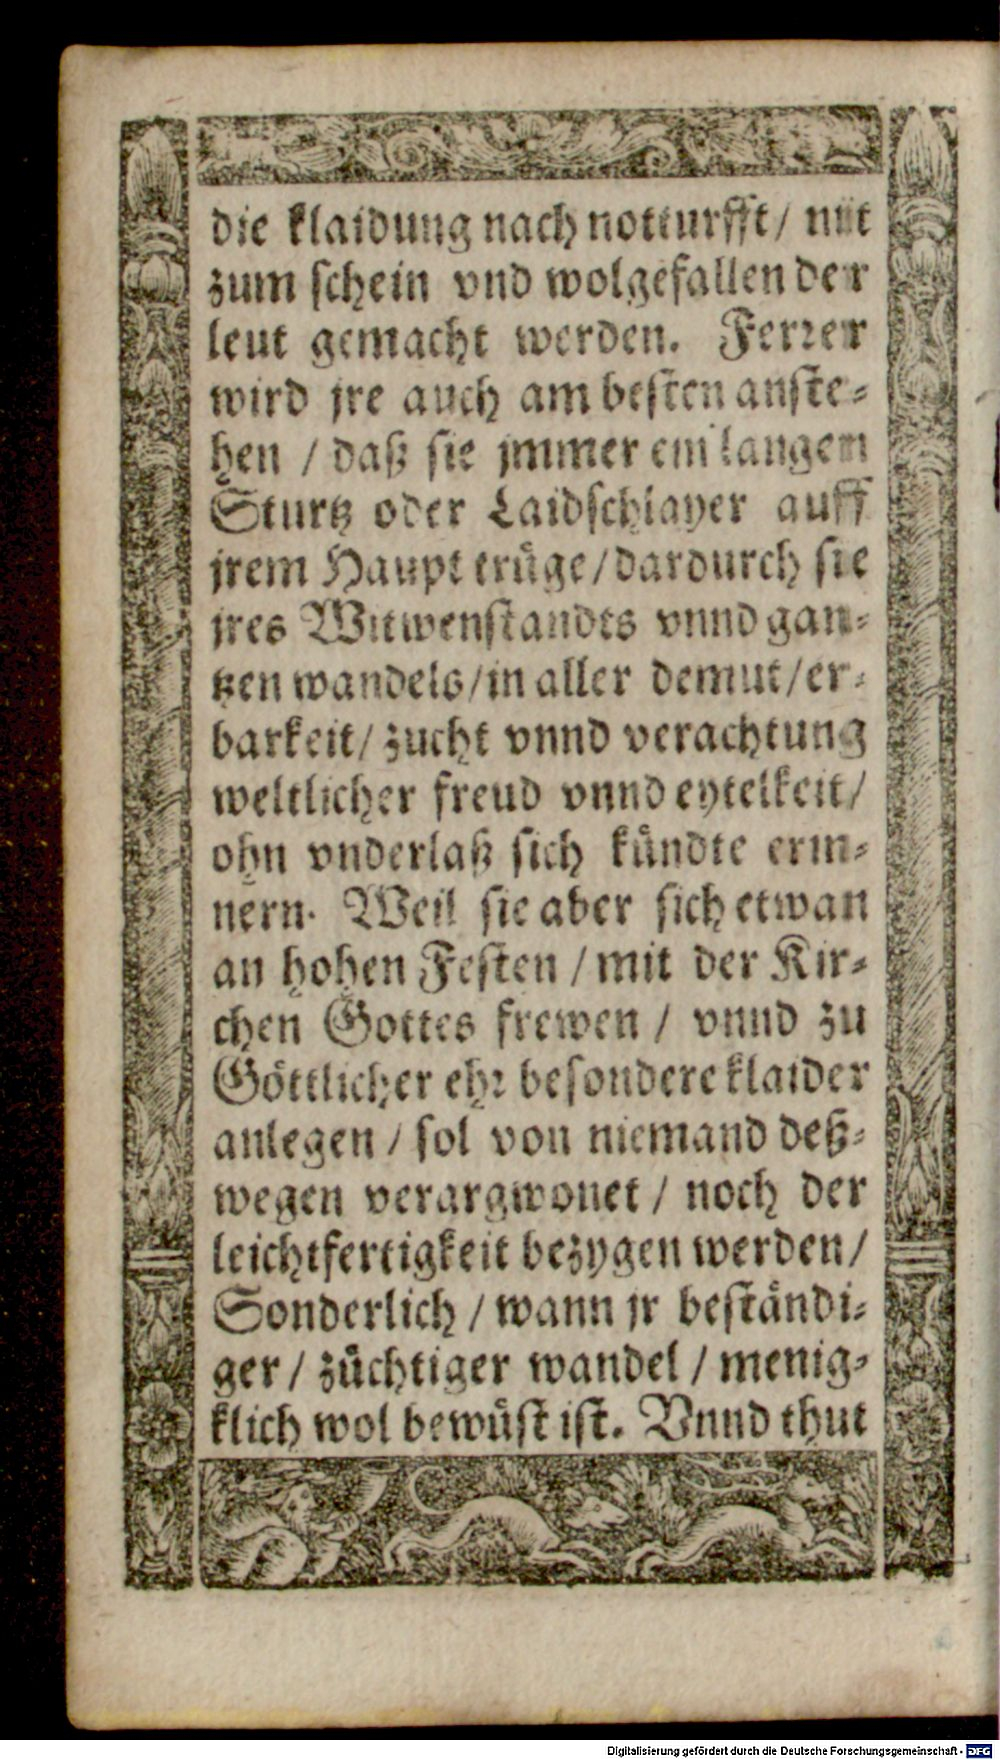 die klaidung nach notturfft / nit
zum schein vnd wolgefallen der
leut gemacht werden. Ferrer
wird jre auch am besten anste-
hen / daß sie jmmer ein langen
Sturtz oder Laidschlayer auff
jrem Haupt trüge / dardurch sie
jres Witwenstandts vnnd gan-
tzen wandels / in aller demut / er-
barkeit / zucht vnnd verachtung
weltlicher freud vnnd eytelkeit /
ohn vnderlaß sich kündte erin-
nern. Weil sie aber sich etwan
an hohen Festen / mit der Kir-
chen Gottes frewen / vnnd zu
Göttlicher ehr besondere klaider
anlegen / sol von niemand deß-
wegen verargwonet / noch der
leichtfertigkeit bezygen werden /
Sonderlich / wann jr beständi-
ger / züchtiger wandel / menig-
klich wol bewüst ist. Vnnd thut
Digitalisierung gefördert durch die Deutsche Forschungsgemeinschaft - DFG